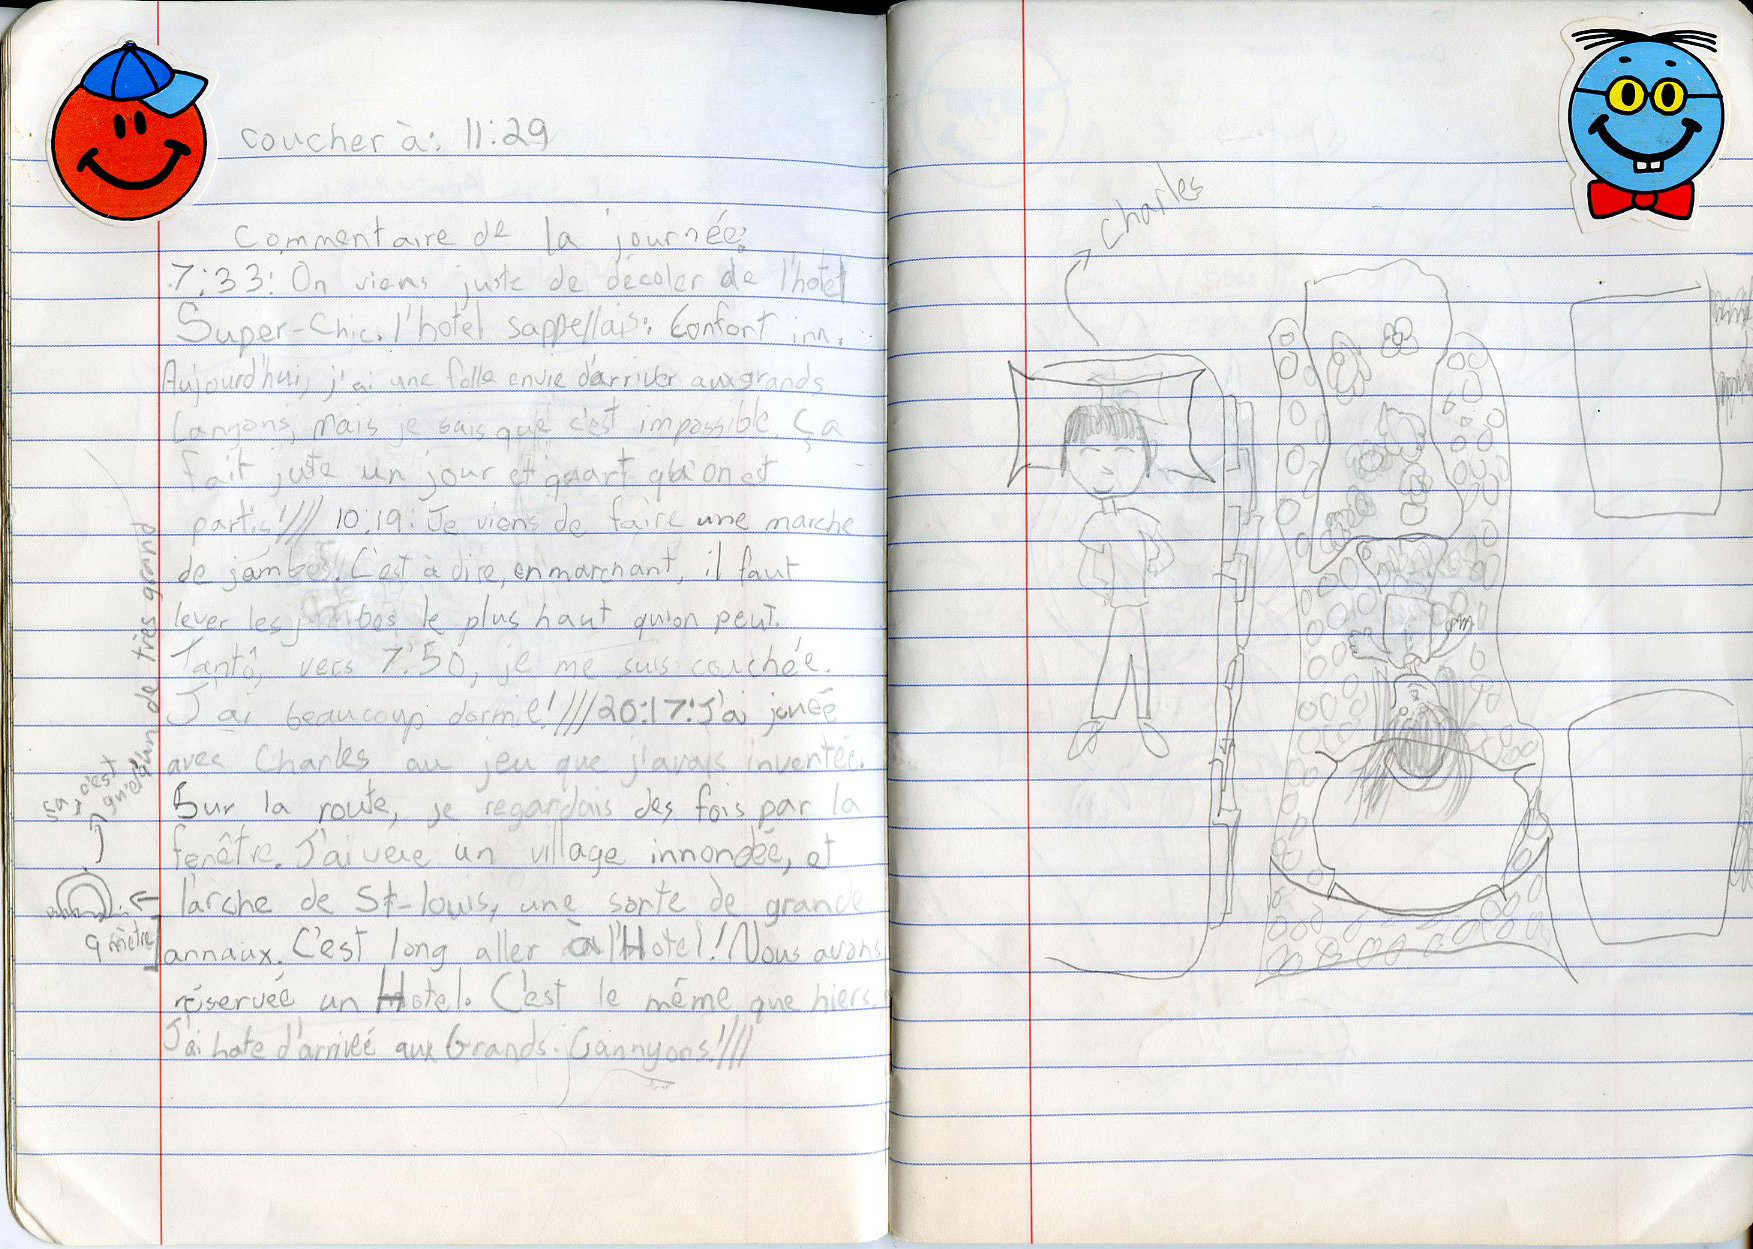 coucher à: 11:29
Commentaire de la journée:
7:33: On viens juste de décoler de l'hotel
Super-Chic. l'hotel sappellais: Confort inn.
Aujourd'hui, j'ai une folle envie d'arriver aux grands
Canyons, mais je sais que c'est impossible. Ça
fait juste un jour et quart qu'on est
partis!//// 10:19: Je viens de faire une marche
de jambes. C'est à dire, en marchant, il faut
lever les jambes le plus haut qu'on peut.
Tantô, vers 7:50, je me suis couchée.
J'ai beaucoup dormie!////20:17: J'ai jouée
avec Charles au jeu que j'avais inventée.
Sur la route, je regardais des fois par la
fenêtre. J'ai vue un village innondée, et
l'arche de St-louis, une sorte de grande
annaux. C'est long aller à l'Hotel! Nous avons
réservée un Hotel. C'est le même que hiers.
J'ai hate d'arrivée aux Grands-Cannyons!////
ça, c'est
qu'elle
de très grand
9 mètre
Charles